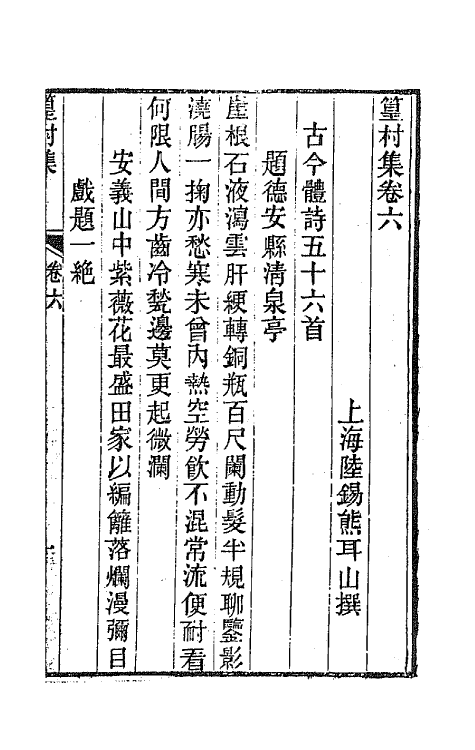 篁村集卷六
上海陸錫熊耳山撰
古今體詩五十六首
題德安縣清泉亭
崖根石液瀉雲肝綆轉銅瓶百尺闌動髮半規聊鑒影
澆腸一掬亦愁寒未曾內熱空勞飲不混常流便耐看
何限人間方齒冷甃邊莫更起微瀾
安義山中紫薇花最盛田家以編籬落爛漫彌目
戲題一絕
篁村集
卷六
一